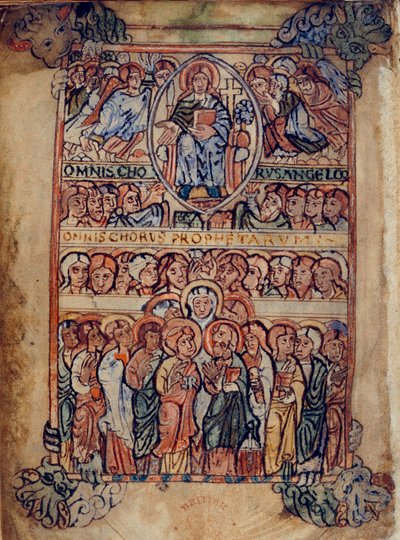 OMNISCHO RVSANGELOR
OMNISCHORUS PROPHETARUM